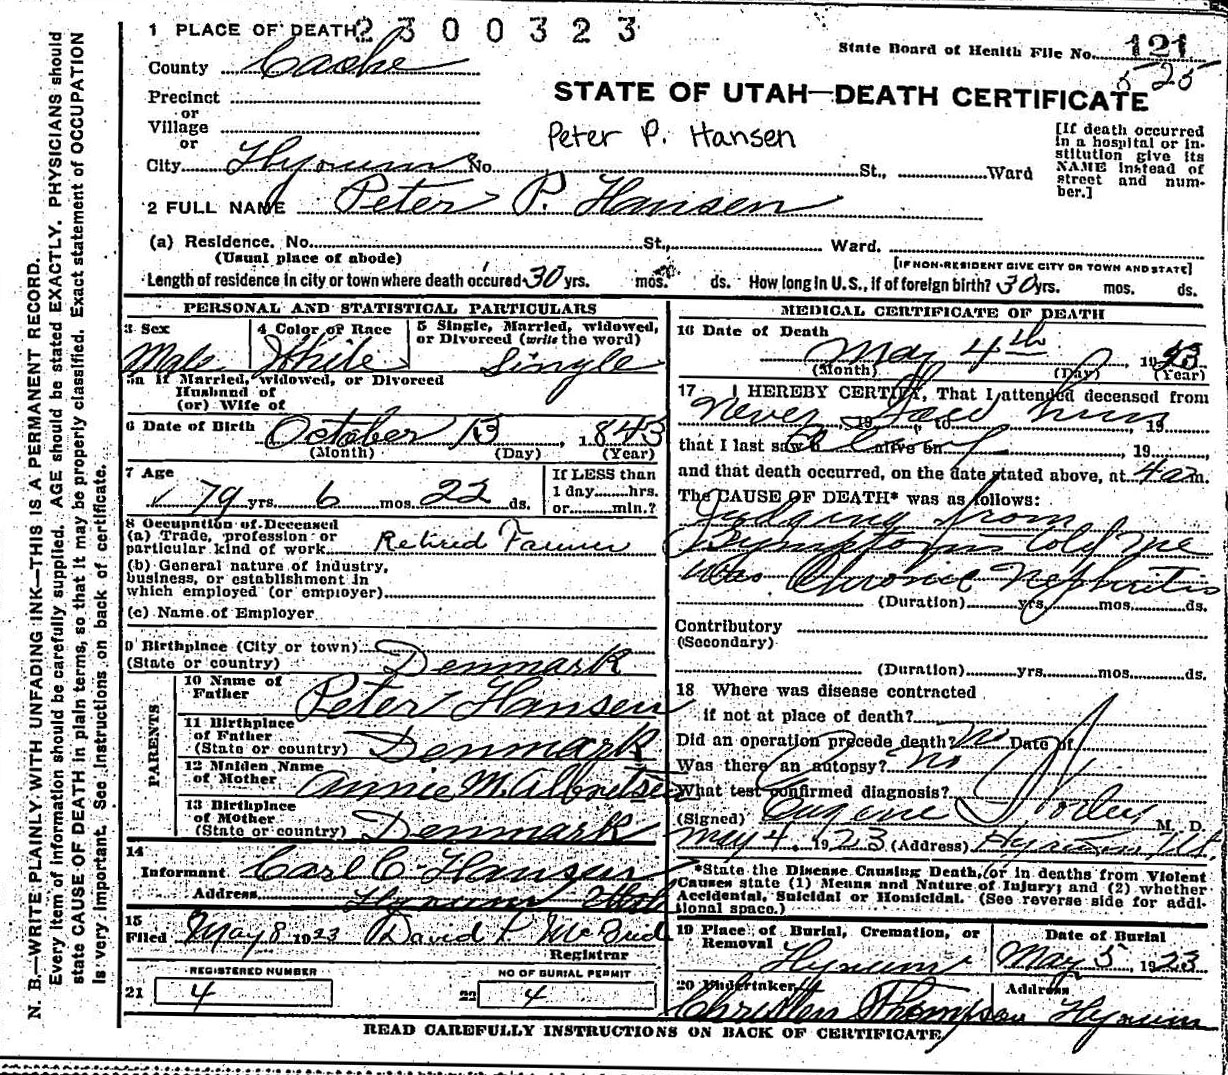 N. B.—WRITE PLAINLY WITH UNFADING INK—THIS IS A PERMANENT RECORD.
Every item of information should be carefully supplied. AGE should be stated EXACTLY. PHYSICIANS should
state CAUSE OF DEATH in plain terms, so that it may be properly classified. Exact statement of OCCUPATION
is very important. See instructions on back of certificate.
1 PLACE OF DEATH 2300323
State Board of Health File No. 121
525
County Cache
STATE OF UTAH—DEATH CERTIFICATE
Precinct
or
Village
or
Peter P. Hansen
[If death occurred
in a hospital or in-
stitution give its
NAME instead of
street and num-
ber.]
City Hyrum No. St., Ward
2 FULL NAME Peter P. Hansen
(a) Residence. No. St., Ward.
(Usual place of abode)
[IF NON-RESIDENT GIVE CITY OR TOWN AND STATE]
Length of residence in city or town where death occured 30 yrs. mos. ds. How long in U.S., if of foreign birth? 30 yrs. mos. ds.
PERSONAL AND STATISTICAL PARTICULARS
3 Sex
Male
4 Color or Race
White
5 Single, Married, widowed,
or Divorced (write the word)
Single
5a If Married, widowed, or Divorced
Husband of
(or) Wife of
6 Date of Birth October 13, 1843
(Month) (Day) (Year)
7 Age
79 yrs. 6 mos. 22 ds.
If LESS than
1 day hrs.
or min.?
8 Occupation of Deceased
(a) Trade, profession or
particular kind of work Retired Farmer
(b) General nature of industry,
business, or establishment in
which employed (or employer)
(c) Name of Employer
9 Birthplace (City or town)
(State or country) Denmark
PARENTS
10 Name of
Father Peter Hansen
11 Birthplace
of Father
(State or country) Denmark
12 Maiden Name
of Mother Annie M. Albretsen
13 Birthplace
of Mother
(State or country) Denmark
14
Informant Carl C Hansen
Address Hyrum Utah
15
Filed May 8 1923 David P McBride
Registrar
REGISTERED NUMBER
21 4
NO OF BURIAL PERMIT
22 4
MEDICAL CERTIFICATE OF DEATH
16 Date of Death
May 4th, 1923
(Month) (Day) (Year)
17 I HEREBY CERTIFY, That I attended deceased from
Never, 19 to Saw him, 19
that I last saw h alive on, 19
and that death occurred, on the date stated above, at 4 am.
The CAUSE OF DEATH* was as follows:
Judging from
Symptoms told me
was Chronic Nephritis
(Duration) yrs. mos. ds.
Contributory
(Secondary)
(Duration) yrs. mos. ds.
18 Where was disease contracted
if not at place of death?
Did an operation precede death? no Date of
Was there an autopsy? no
What test confirmed diagnosis?
(Signed) Eugene Worley M. D.
May 4, 1923 (Address) Hyrum Ut.
*State the Disease Causing Death, or in deaths from Violent
Causes state (1) Means and Nature of Injury; and (2) whether
Accidental, Suicidal or Homicidal. (See reverse side for addi-
tional space.)
19 Place of Burial, Cremation, or
Removal
Hyrum
Date of Burial
May 5, 1923
20 Undertaker
Christen Thompson
Address
Hyrum
READ CAREFULLY INSTRUCTIONS ON BACK OF CERTIFICATE